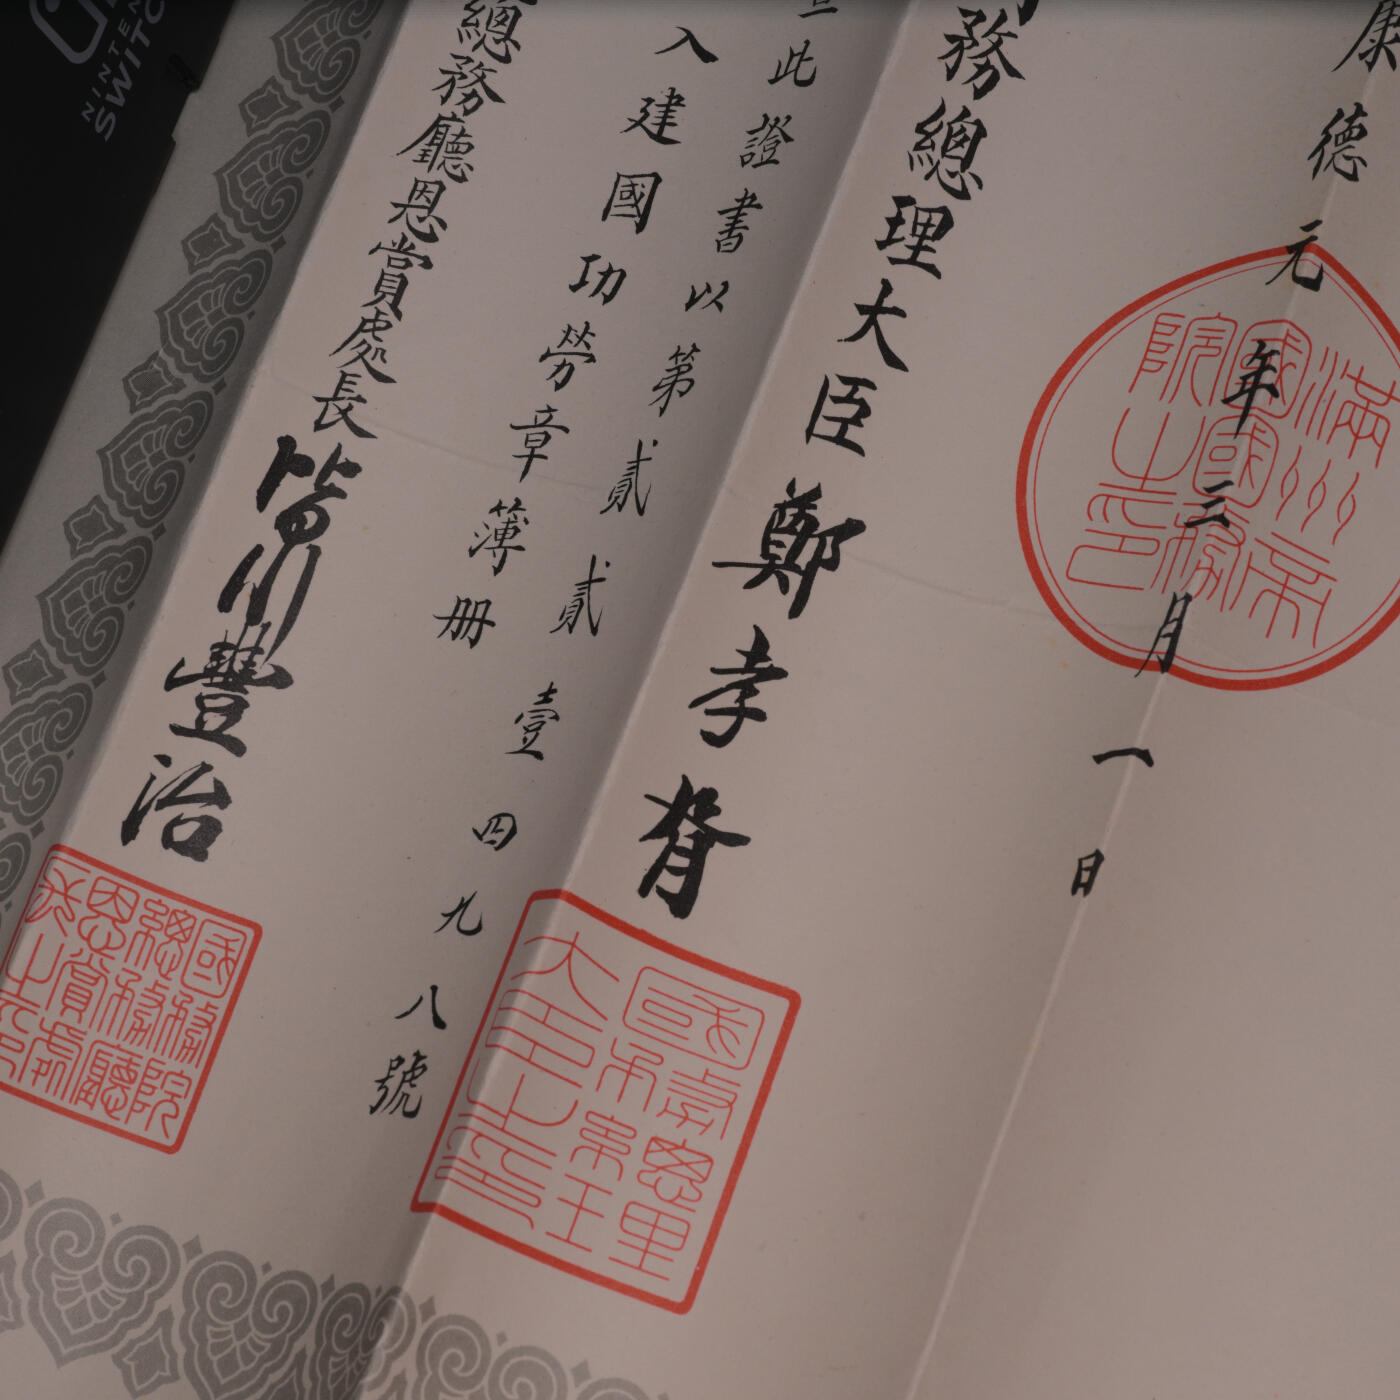 康德元年三月一日
務總理大臣鄭孝胥
此證書以第貳貳壹四九八號
入建國功勞章簿册
總務廳恩賞處長皆川豐治
滿州帝
國國務
院之印
國務總理
大臣之
國務院
總務廳
恩賞處
長之印
NINTENDO
SWITCH